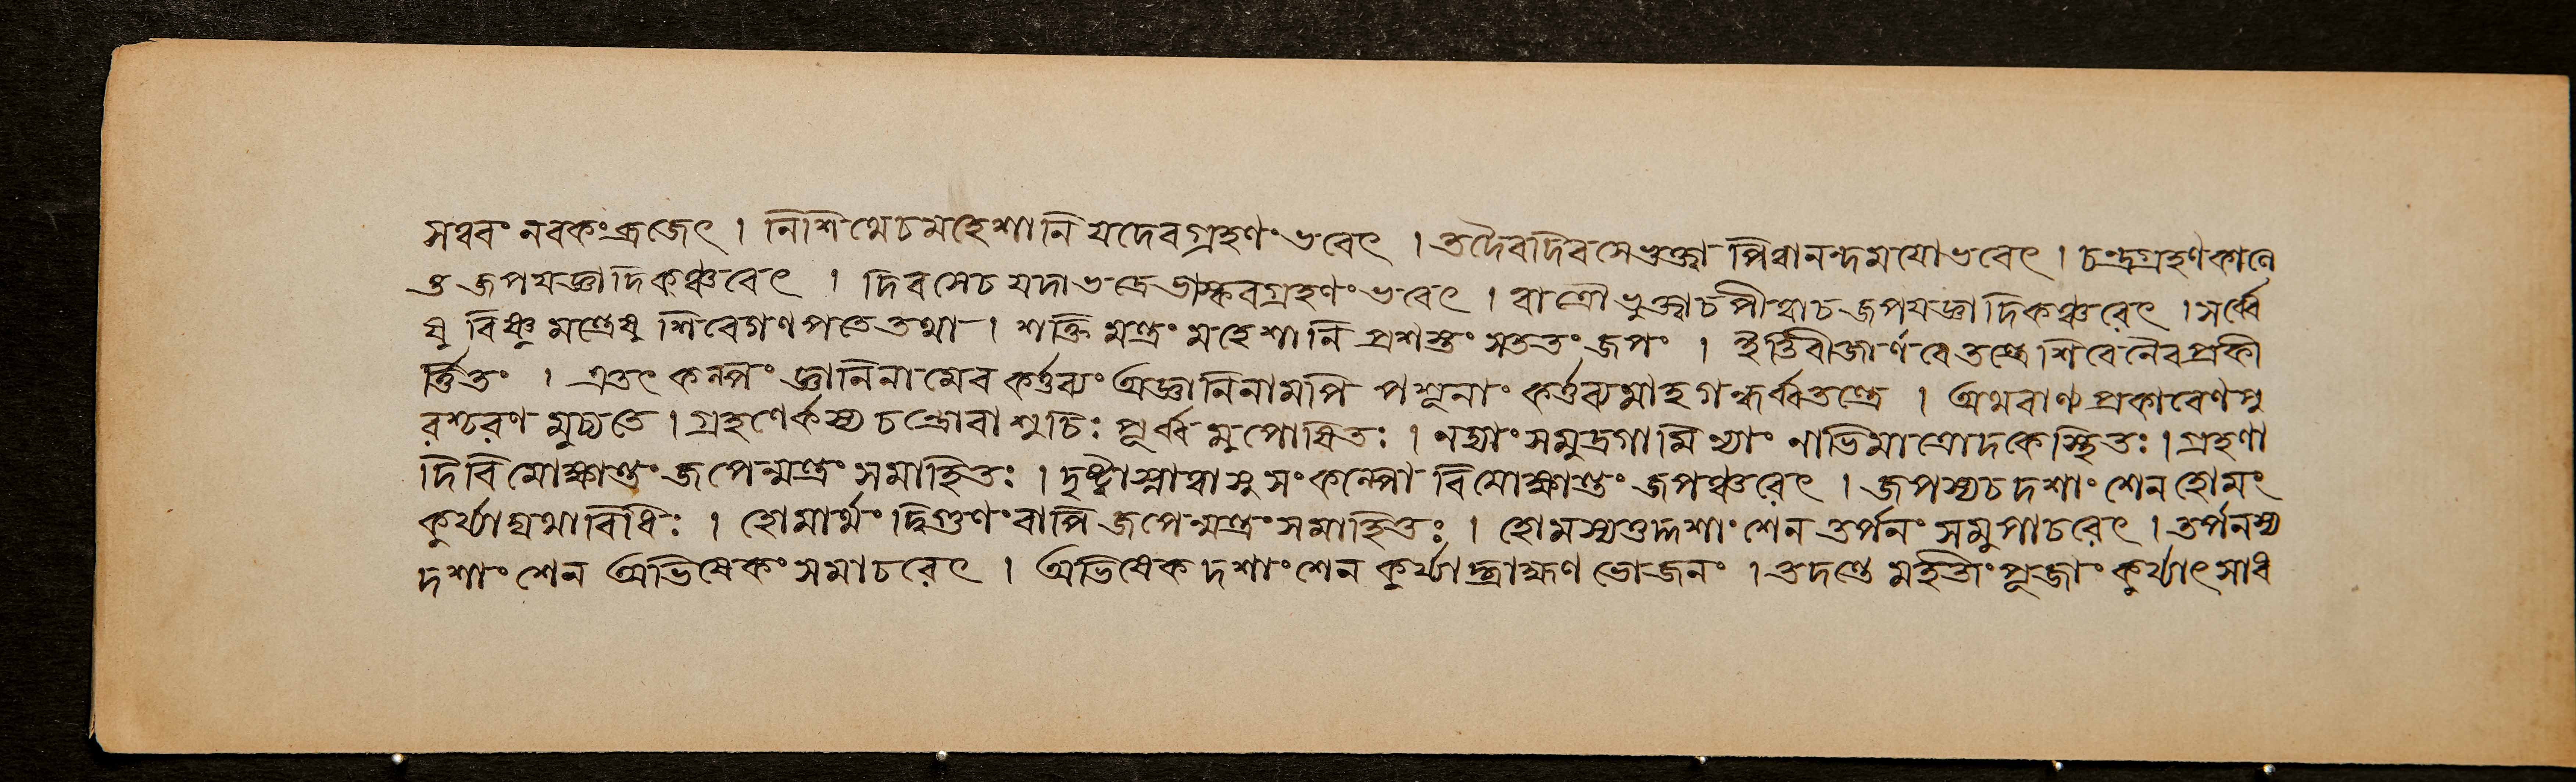 সত্বরং নরকং ব্রজেৎ । নিশিথেচমহেশানি যদেবগ্রহণং ভবেৎ । তদৈবদিবসেভুক্ত্বা পিত্বানন্দময়োভবেৎ । চন্দ্রগ্রহণকালে
তু জপযজ্ঞাদিকঞ্চরেৎ । দিবসেচ যদাভদ্রেভাস্করগ্রহণং ভবেৎ । রাত্রৌভুক্ত্বাচপীত্বাচজপযজ্ঞাদিকঞ্চরেৎ । সর্ব্বে
ষু বিষ্ণুমন্ত্রেষু শিবেগণপতেতথা । শক্তি মন্ত্রং মহেশানি প্রশস্তং সততং জপং । ইত্তিবীজার্ণবেতন্ত্রে শিবেনৈবপ্রকী
র্ত্তিতং । এতৎ কল্পং জ্ঞানিনামেব কর্ত্তব্যং অজ্ঞানিনামপি পশূনাং কর্ত্তব্যমাহগন্ধর্ব্বতন্ত্রে । অথবাণ্যপ্রকারেণপু
রশ্চরণ মুচ্যতে । গ্রহণের্কস্য চন্দ্রোবাশুচিঃ পূর্ব্ব মুপোষিতঃ । নদ্যাং সমুদ্রগামিন্যাং নাভিমাত্রোদকেস্থিতঃ । গ্রহণা
দিবিমোক্ষান্তং জপেন্মন্ত্রং সমাহিতঃ । দৃষ্ট্বাস্নাত্বাসুসংকল্পো বিমোক্ষান্তং জপঞ্চরেৎ । জপস্যচদশাং শেন হোমং
কুর্য্যাদ্যথাবিধিঃ । হোমার্থং দ্বিগুণং বাপি জপেন্মন্ত্রং সমাহিতঃ । হোমস্যতুদ্দশাং শেন তর্পনং সমুপাচরেৎ । তর্পনস্য
দশাং শেন অভিষেকং সমাচরেৎ । অভিষেক দশাং শেন কুর্য্যাদ্ব্রাহ্মণ ভোজনং । তদন্তে মহতিং পূজাং কুর্য্যাৎ সাধ